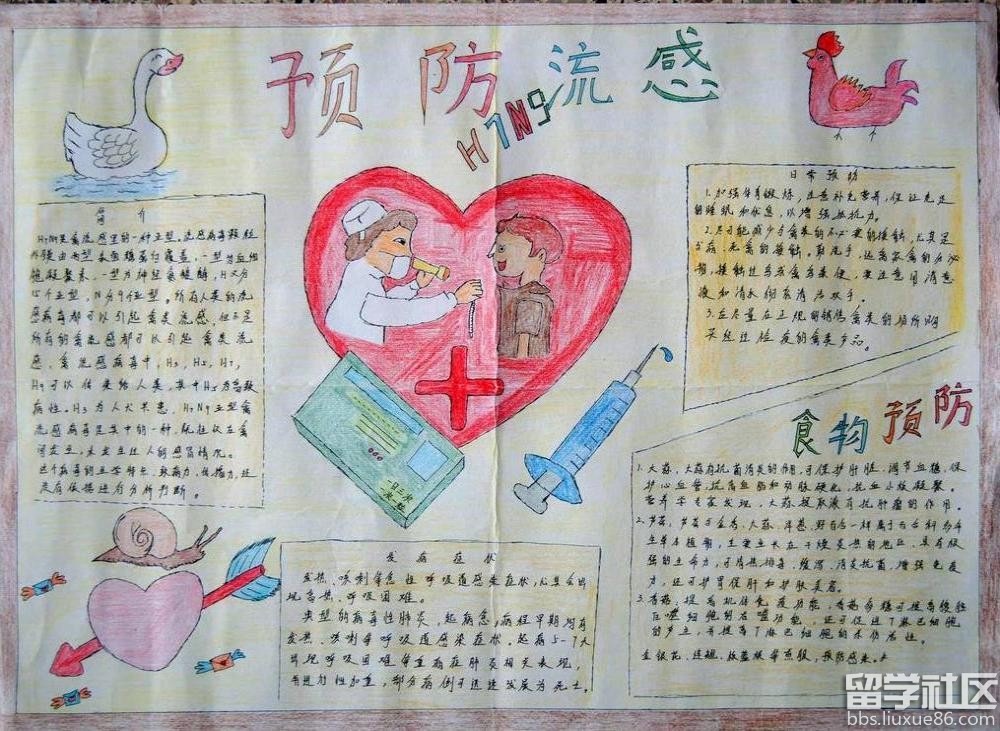 预防流感
H7N9
简介
H7N9是禽流感里的一种亚型。流感病毒颗粒
外膜由两型表面糖蛋白覆盖,一型为血细
胞凝集素,一型为神经氨酸酶,H又分
15个亚型,N分9个亚型。所有人类的流
感病毒都可以引起禽类流感,但不是
所有的禽流感都可以引起人类流
感,禽流感病毒中,H3、H5、H7、
H9可以传染给人类,其中H5为高致
病性。H7N9亚型禽
流感病毒是其中的一种,既往仅在禽
间发生,未发生过人的感冒情况。
这个病毒的生学特点,致病力,传播力,还
没有依据进行分析判断。
日常预防
1.加强体育锻炼,注意补充营养,保证充足
的睡眠和休息,以增强抵抗力。
2.尽可能减少与禽类的不必要的接触,尤其是
与病、死禽的接触。勤洗手,远离家禽的分泌
物,接触过鸟或禽鸟粪便,要注意用消毒
液和清水彻底清洁双手。
3.应尽量在正规的销售禽类的场所购
买经过检疫的禽类产品。
食物预防
1.大蒜,大蒜有抗菌消炎的作用,可保护肝脏,调节血糖,保
护心血管,抗高血脂和动脉硬化,抗血小板凝聚。
营养学专家发现,大蒜提取液有抗肿瘤的作用。
2.芦荟,芦荟与大蒜、洋葱、野百合一样属于百合科多年
生草本植物,主要生长在干燥炎热的地区,具有极
强的生命力,可清热排毒、缓泻、消炎抗菌,增强免疫
力,还可护胃保肝和护肤美容。
3.香菇,提高机体免疫功能,香菇多糖可提高
吞噬细胞的吞噬功能,还可促进T淋巴细胞
的产生,并提高T淋巴细胞的杀伤活性。
金银花、连翘、板蓝根等煎服,预防感染。
一日三次
一次一粒
发病症状
发热、咳嗽等急性呼吸道感染症状,尤其会出
现高热、呼吸困难。
典型的病毒性肺炎,起病急,病程早期均有
发热、咳嗽等呼吸道感染症状。起病5-7天
出现呼吸困难等重症肺炎相关表现,
并进行性加重,部分病例可迅速发展为死亡。
留学社区
bbs.liuxue86.com